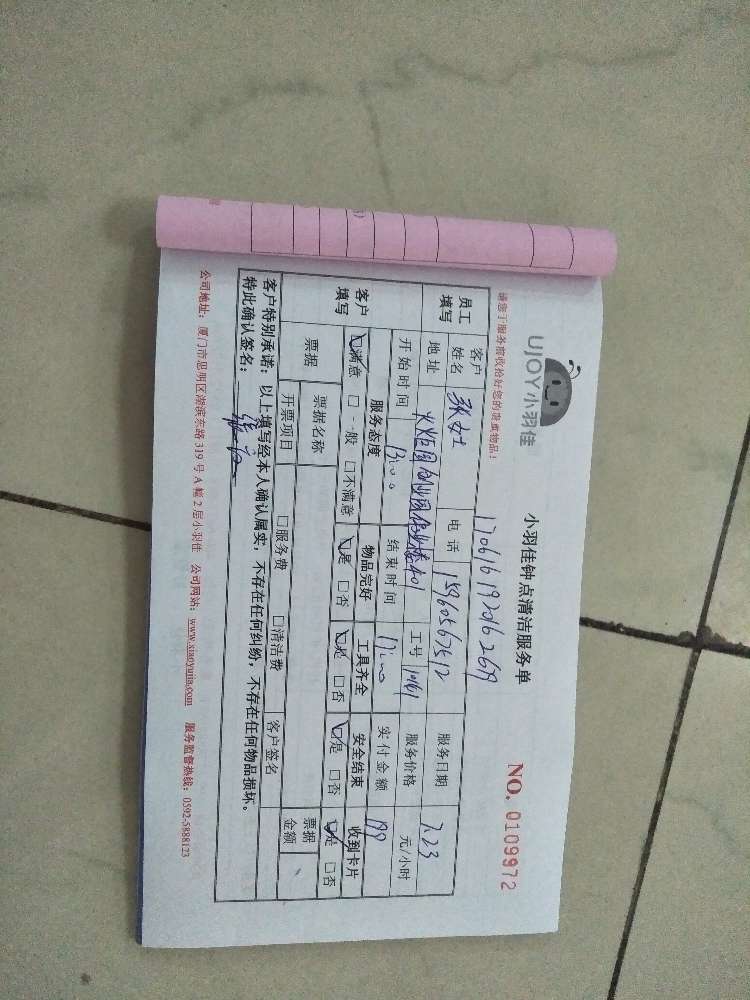 UJOY小羽佳
小羽佳钟点清洁服务单
NO. 0109972
请您于服务前收拾好您的贵重物品!
员工填写 客户姓名 张女士 电话 15960567512 服务日期 7.23
地址 火炬园创业园创业大楼401 工号 10161 服务价格 元/小时
开始时间 13:00 结束时间 17:00 实付金额
客户填写 服务态度 物品完好 工具齐全 安全结束 收到卡片
☑满意 □一般 □不满意 ☑是 □否 ☑是 □否 ☑是 □否 ☑是 □否
票据 票据名称 客户签名 票据金额
开票项目 □服务费 □清洁费
客户特别承诺:以上填写经本人确认属实,不存在任何纠纷,不存在任何物品损坏。
特此确认签名:
公司地址:厦门市思明区湖滨东路319号A幢2层小羽佳 公司网站:www.xiaoyujia.com 服务监督热线:0592-5888123